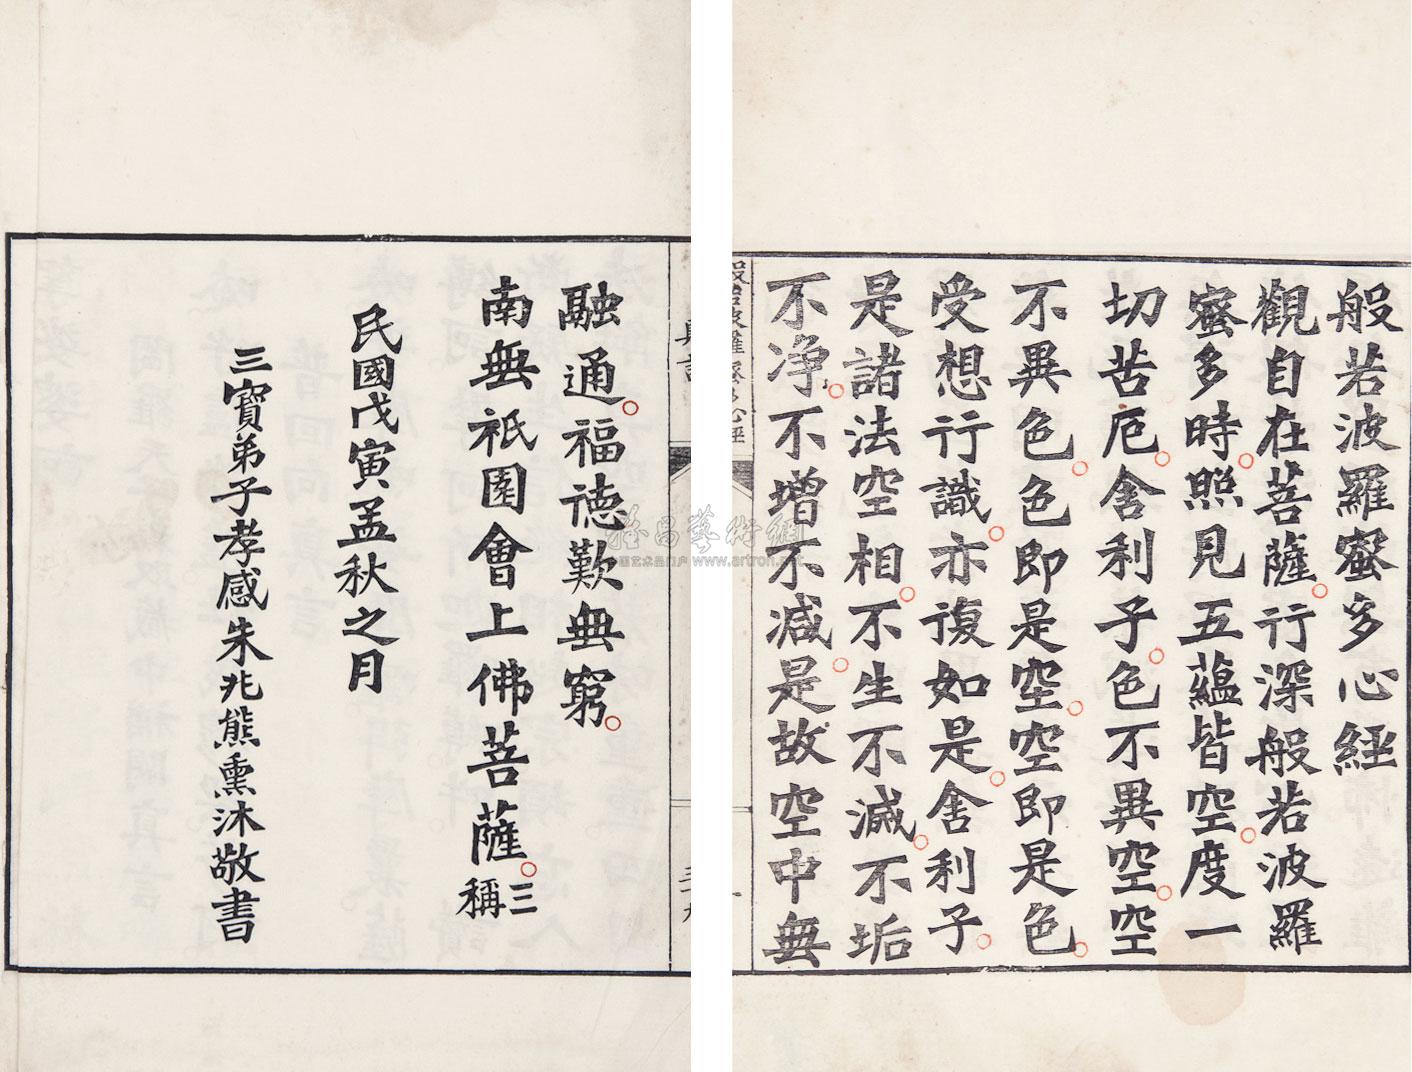 般若波羅蜜多心經
觀自在菩薩。行深般若波羅
蜜多時。照見五蘊皆空。度一
切苦厄。舍利子。色不異空。空
不異色。色即是空。空即是色。
受想行識。亦復如是。舍利子。
是諸法空相。不生不滅。不垢
不净。不增不減。是故空中無
般若波羅蜜多心經
融通。福德歎無窮。
南無祇園會上佛菩薩。三稱
民國戊寅孟秋之月
三寶弟子孝感朱兆熊熏沐敬書
雅昌藝術網
中国艺术品门户 www.artron.net